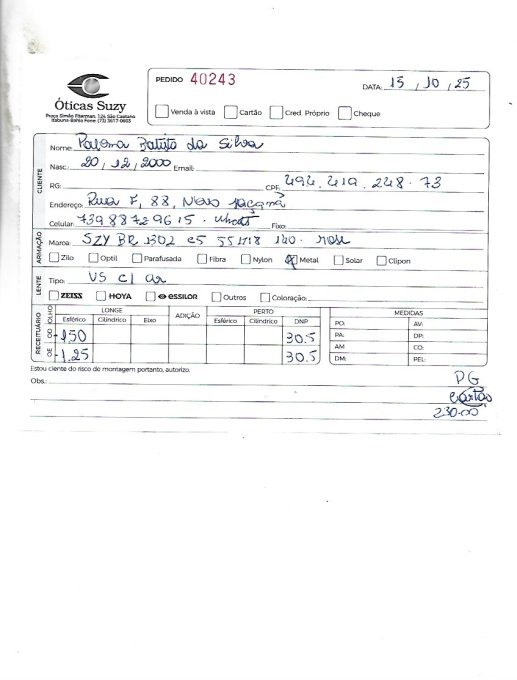 Óticas Suzy
Praça Simão Fitarman, 124 São Caetano
Itabuna-Bahia Fone (73) 3617-0603
PEDIDO 40243
DATA: 15 / 10 / 25
Venda à vista Cartão Cred. Próprio Cheque
CLIENTE
Nome: Batista da Silva
Nasc.: 20 / 12 / 2000 Email:
RG: CPF: 494.419.248-73
Endereço: Rua F, 88, Novo
Celular: 73988729615 - Whats Fixo:
ARMAÇÃO
Marca: SZY BR 1302 C5 551718 140 - rose
Zilo Optil Parafusada Fibra Nylon Metal Solar Clipon
LENTE
Tipo: VS c/ ar
ZEISS HOYA essilor Outros Coloração:
RECEITUÁRIO
OLHO LONGE ADIÇÃO PERTO MEDIDAS
Esférico Cilíndrico Eixo Esférico Cilíndrico DNP
OD -150 30.5
OE -1.25 30.5
PO: AV:
PA: DP:
AM CO:
DM: PEL:
Estou ciente do risco de montagem portanto, autorizo.
Obs.:
PG
cartão
230.00